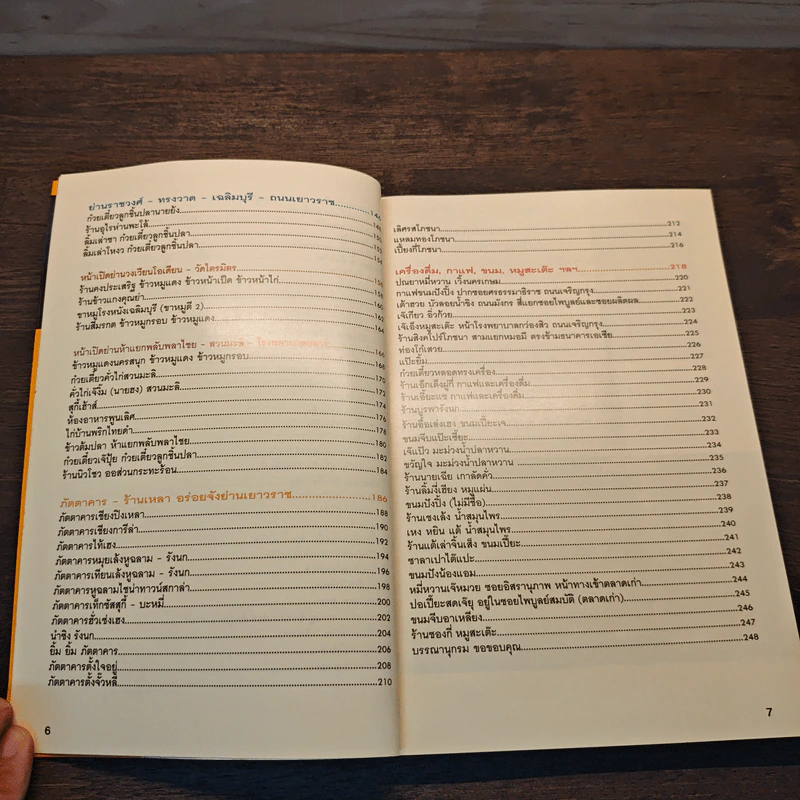 ย่านราชวงศ์ - ทรงวาด - เฉลิมบุรี - ถนนเยาวราช
ก๋วยเตี๋ยวลูกชิ้นปลานายย้ง
ร้านอุไรห่านพะโล้
ลิ้มเล่าซา ก๋วยเตี๋ยวลูกชิ้นปลา
ลิ้มเล่าโหงว ก๋วยเตี๋ยวลูกชิ้นปลา
หน้าเปิดย่านวงเวียนโอเดียน - วัดไตรมิตร
ร้านคงประเสริฐ ข้าวหมูแดง ข้าวหน้าเป็ด ข้าวหน้าไก่
ร้านข้าวแกงคุณย่า
ขาหมูโรงหนังเฉลิมบุรี (ขาหมูตี 2)
ร้านสีมรกต ข้าวหมูกรอบ ข้าวหมูแดง
หน้าเปิดย่านห้าแยกพลับพลาไชย - สวนมะลิ -
ข้าวหมูแดงนครสนุก ข้าวหมูแดง ข้าวหมูกรอบ 168
ก๋วยเตี๋ยวคั่วไก่สวนมะลิ 170
คั่วไก่เจ๊งิ้ม (นายฮง) สวนมะลิ 172
สุกี้เฮ้าส์ 174
ห้องอาหารพูนเลิศ 176
ไก่บ้านพริกไทยดำ 178
ข้าวต้มปลา ห้าแยกพลับพลาไชย 180
ก๋วยเตี๋ยวเจ๊ปุ้ย ก๋วยเตี๋ยวลูกชิ้นปลา 182
ร้านนิวโชว ออส่วนกระทะร้อน 184
ภัตตาคาร - ร้านเหลา อร่อยจังย่านเยาวราช 186
ภัตตาคารเชียงปิงเหลา 188
ภัตตาคารเชียงการีล่า 190
ภัตตาคารไท้เฮง 192
ภัตตาคารหมุยเล้งหูฉลาม - รังนก 194
ภัตตาคารเทียนเล้งหูฉลาม - รังนก 196
ภัตตาคารหูฉลามไชน่าทาวน์สกาล่า 198
ภัตตาคารเท็กซัสสุกี้ - บะหมี่ 200
ภัตตาคารฮั่วเซ่งเฮง 202
น่ำซิง รังนก 204
ยิ้ม ยิ้ม ภัตตาคาร 206
ภัตตาคารตั้งใจอยู่ 208
ภัตตาคารตั้งจั๊วหลี 210
6
เลิศรสโภชนา 212
แหลมทองโภชนา 214
เปี๊ยงกี่โภชนา 216
เครื่องดื่ม, กาแฟ, ขนม, หมูสะเต๊ะ ฯลฯ 218
ปณยาหมี่หวาน เวิ้งนครเกษม 220
กาแฟขนมปังปิ้ง ปากซอยศรธรรมาธิราช ถนนเจริญกรุง 221
เต้าฮวย บัวลอยน้ำขิง ถนนมังกร สี่แยกซอยไพบูลย์และซอยผลิตผล 222
เจ๊เกียว อิ่วก้วย 223
เจ๊เอ็งหมูสะเต๊ะ หน้าโรงพยาบาลกว๋องสิว ถนนเจริญกรุง 224
ร้านสิงคโปร์โภชนา สามแยกหมอมี ตรงข้ามธนาคารเอเชีย 225
ท่องโก๋เสวย 226
แป๊ะยิ้ม 227
ก๋วยเตี๋ยวหลอดทรงเครื่อง 228
ร้านเอ็กเต็งผู่กี่ กาแฟและเครื่องดื่ม 229
ร้านเอี๊ยะแซ กาแฟและเครื่องดื่ม 230
ร้านบูรพารังนก 231
ร้านอื้อเล่งเฮง ขนมเปี๊ยะเจ 232
ขนมจีบแป๊ะเซี๊ยะ 233
เจ๊แป๊ว มะม่วงน้ำปลาหวาน 234
ขวัญใจ มะม่วงน้ำปลาหวาน 235
ร้านนายเฉีย เกาลัดคั่ว 236
ร้านลิ้มมี่เฮียง หมูแผ่น 237
ขนมปังปิ้ง (ไม่มีชื่อ) 238
ร้านเซงเล้ง น้ำสมุนไพร 239
เหง หยิน แต้ น้ำสมุนไพร 240
ร้านแต้เล่าจิ้นเส็ง ขนมเปี๊ยะ 241
ซาลาเปาไต้แปะ 242
ขนมปังน้องแอม 243
หมี่หวานเจ๊หมวย ซอยอิสรานุภาพ หน้าทางเข้าตลาดเก่า 244
ปอเปี๊ยะสดเจ๊ยุ อยู่ในซอยไพบูลย์สมบัติ (ตลาดเก่า) 245
ขนมจีบอาเหลียง 246
ร้านชองกี่ หมูสะเต๊ะ 247
บรรณานุกรม ขอขอบคุณ 248
7